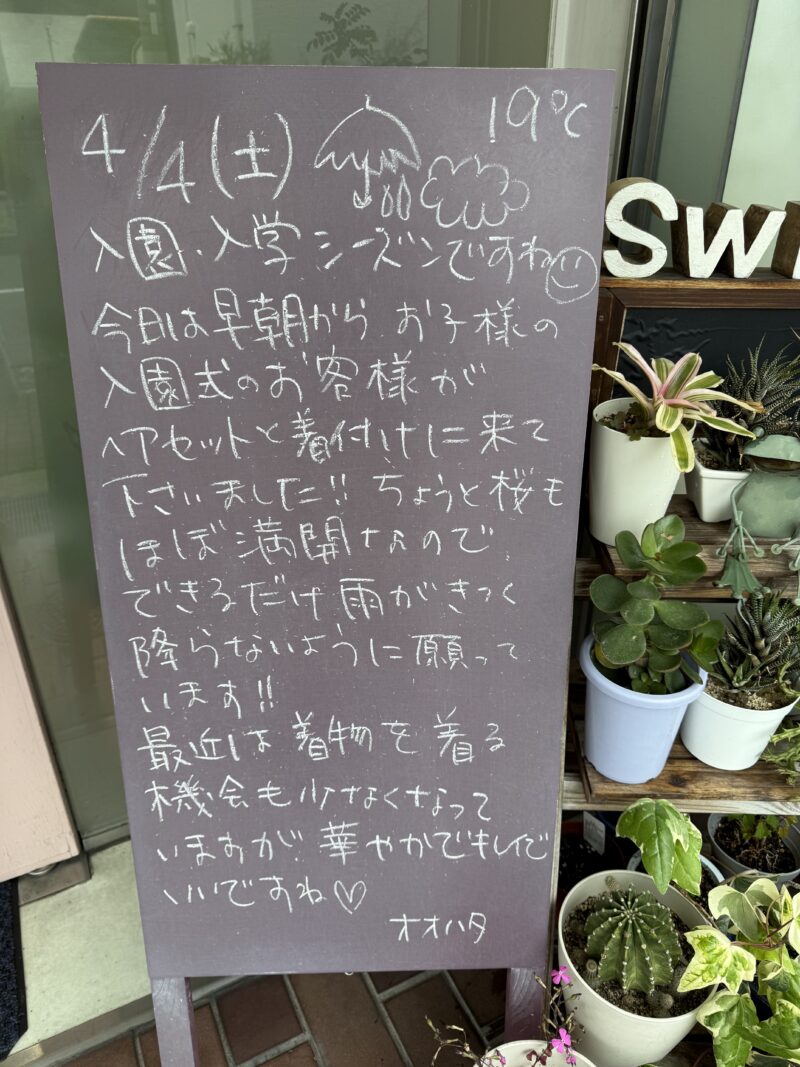 4/4(土) 19℃
入園・入学シーズンですね
今日は早朝から お子様の
入園式のお客様が
ヘアセットと着付けに来て
下さいました!! ちょうど桜も
ほぼ満開なので
できるだけ雨がきつく
降らないように願って
います!!
最近は着物を着る
機会も少なくなって
いますが、華やかでキレイで
いいですね♡
オオハタ
SW